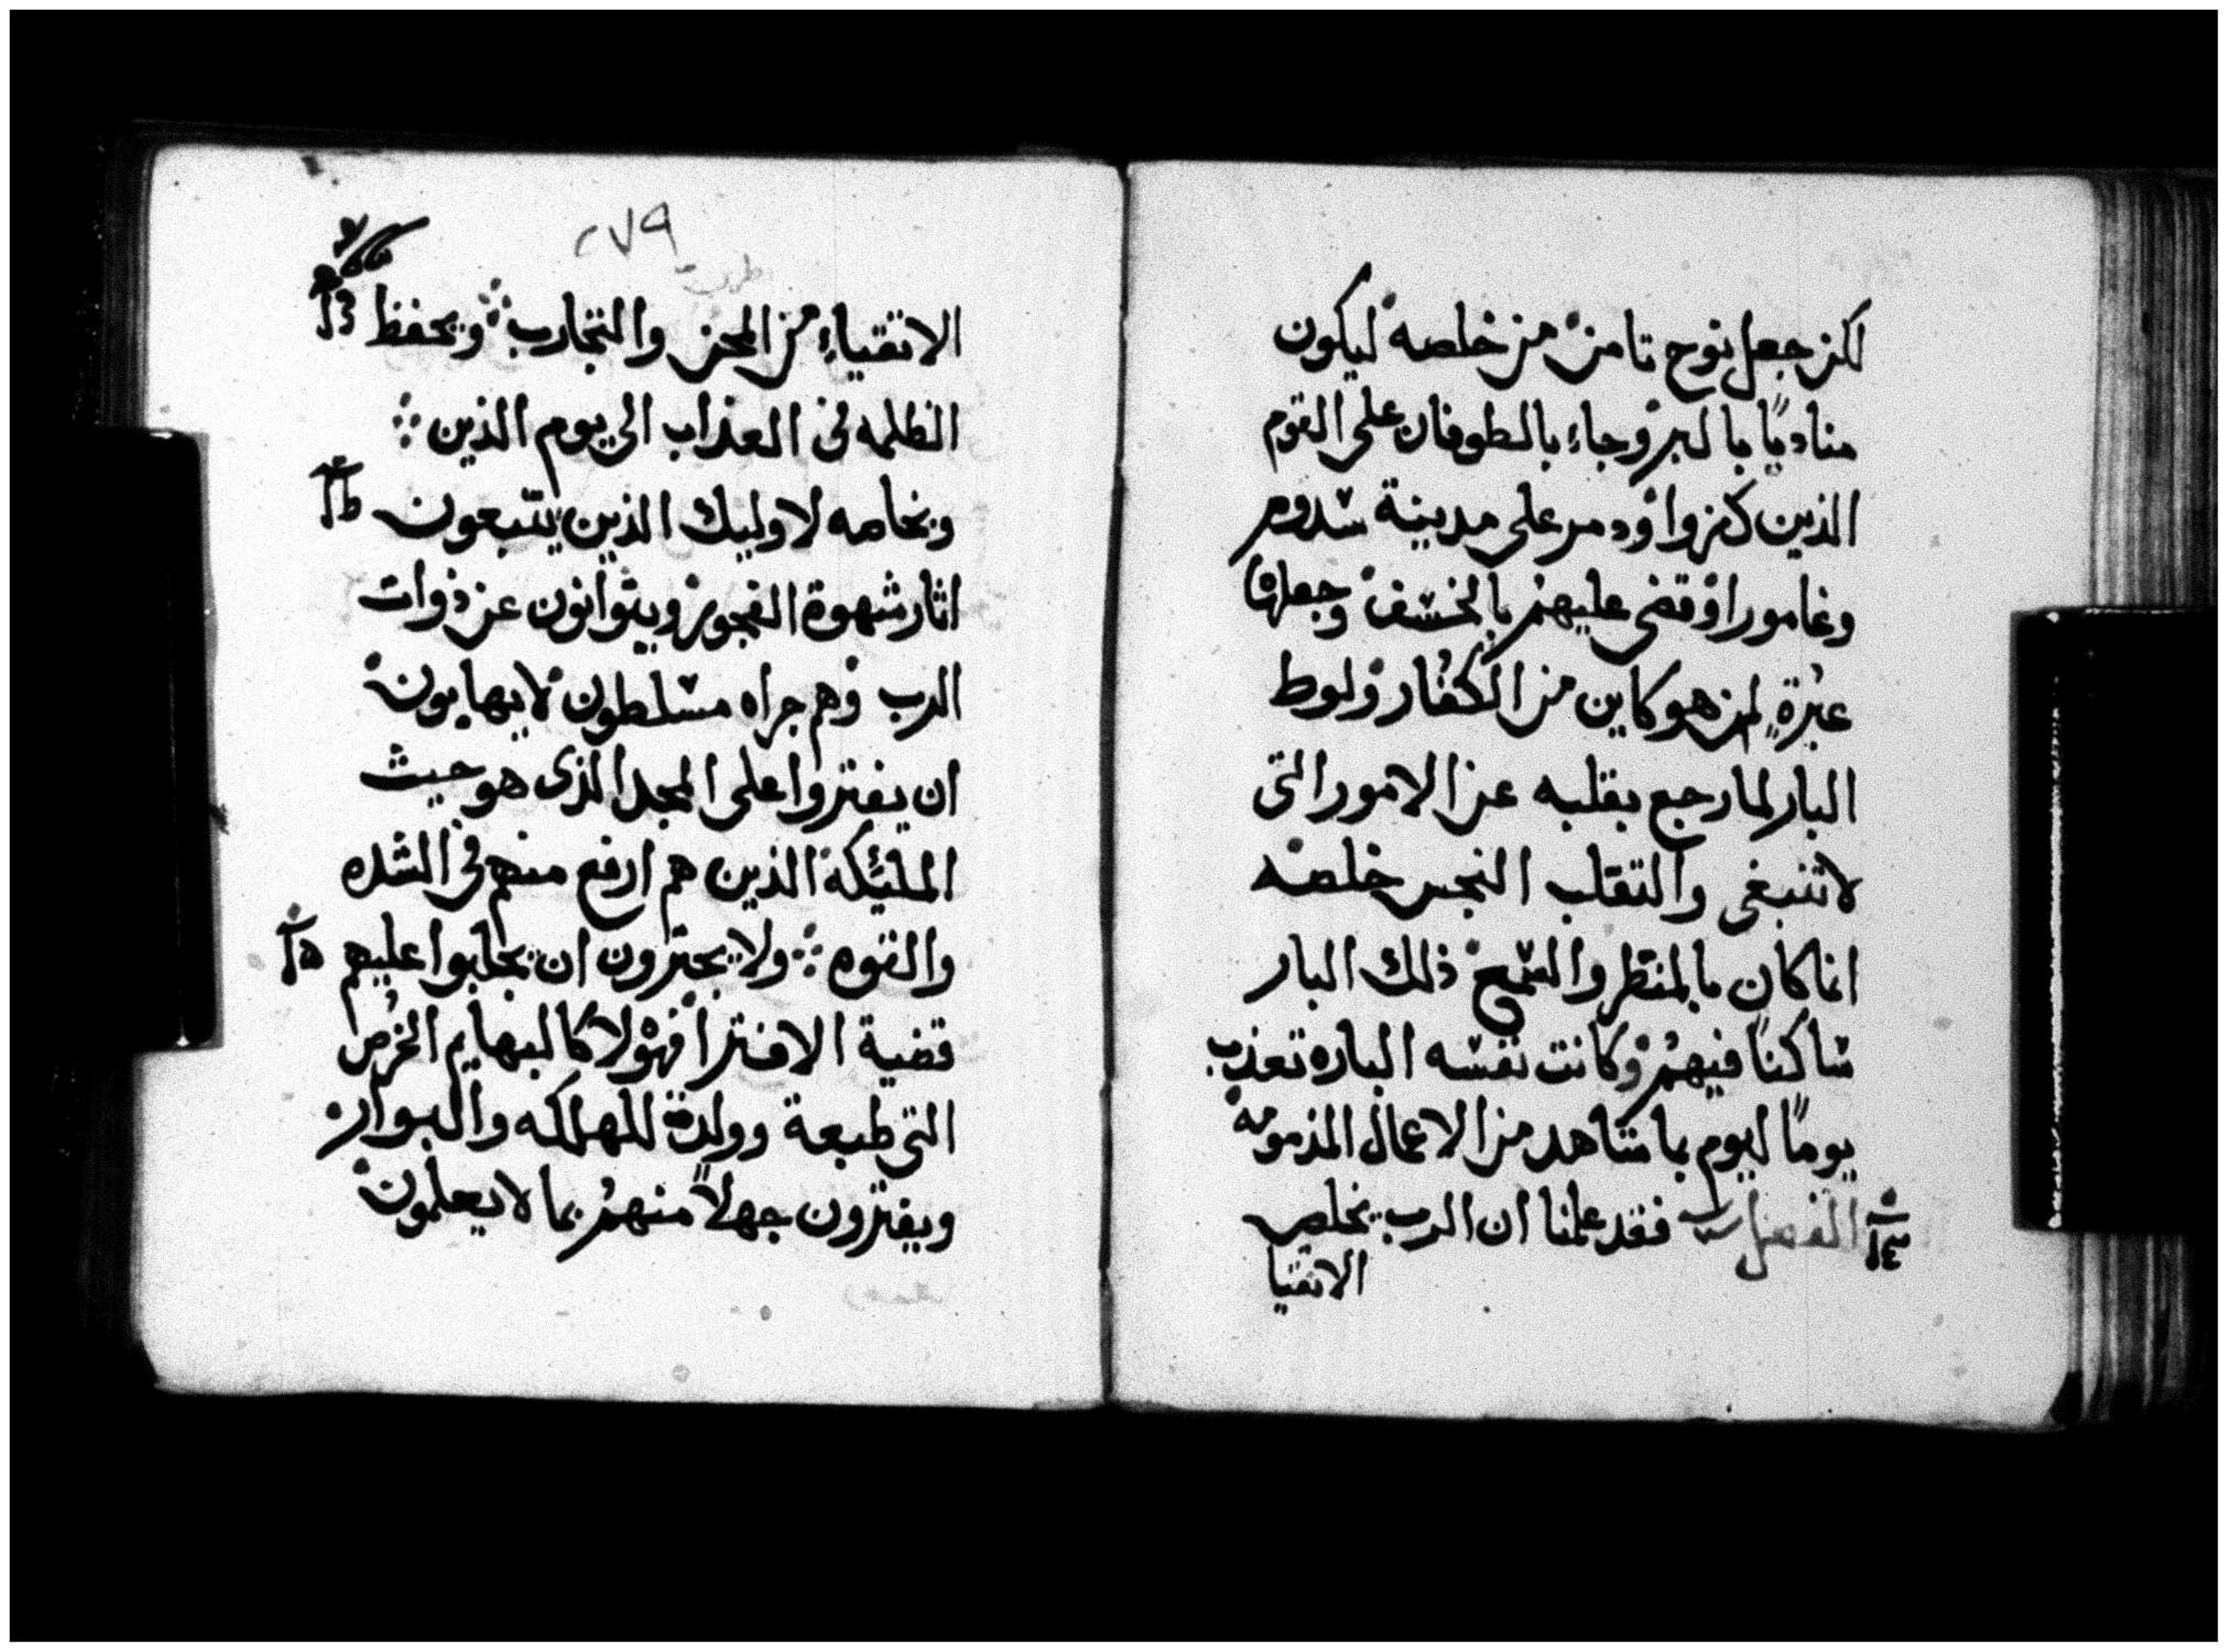 لكن جعل نوح ثامن من خلصه ليكون
مناديًا بالبر وجاء بالطوفان على القوم
الذين كفروا ودمر على مدينة سدوم
وغامورا وقضى عليهم بالخسف وجعلها
عبرةٍ لمن هو كاين من الكفار ولوط
البار لما رجع بقلبه عن الامور التى
لا تنبغى والتقلب النجس خلصه
انما كان بالمنظر والسمع ذلك البار
ساكنًا فيهم وكانت نفسه الباره تعذب
يومًا ليوم بما شاهد من الاعمال المذمومه
الفصل فقد علمنا ان الرب يخلص
الاتقيا
٢٧٩
الاتقياء من المحن والتجارب ويحفظ
الظلمه فى العذاب الى يوم الدين
وبخاصه لاوليك الذين يتبعون
اثار شهوة الفجور ويتوانون عن ذوات
الرب وهم جراه مسلطون لا يهابون
ان يفتروا على المجد الذى هو حيث
المليئكة الذين هم ارفع منهم فى الشده
والقوه ولا يجترون ان يجلبوا عليهم
قضية الافترا فهولا كالبهايم الخرص
التى طبعة وولدة للهلكه والبوار
ويفترون جهلاً منهم بما لا يعلمون